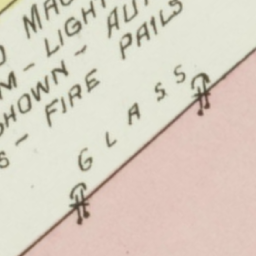 MAC
M - LIGHT
SHOWN - AUT
S - FIRE PAILS
GLASS